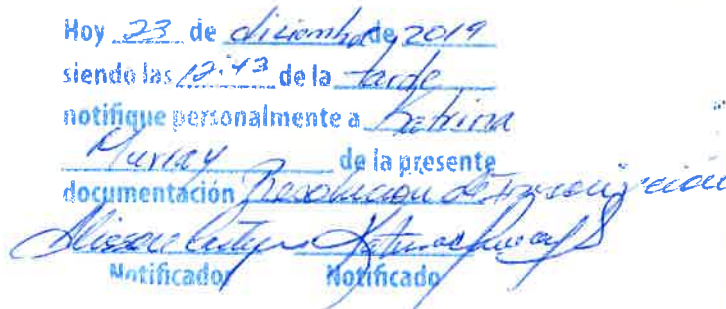 Hoy 23 de diciembre de 2019
siendo las 12:43 de la tarde
notifique personalmente a Katrina
Murray de la presente
documentación Resolucion de Inscripcion
Notificador Notificado